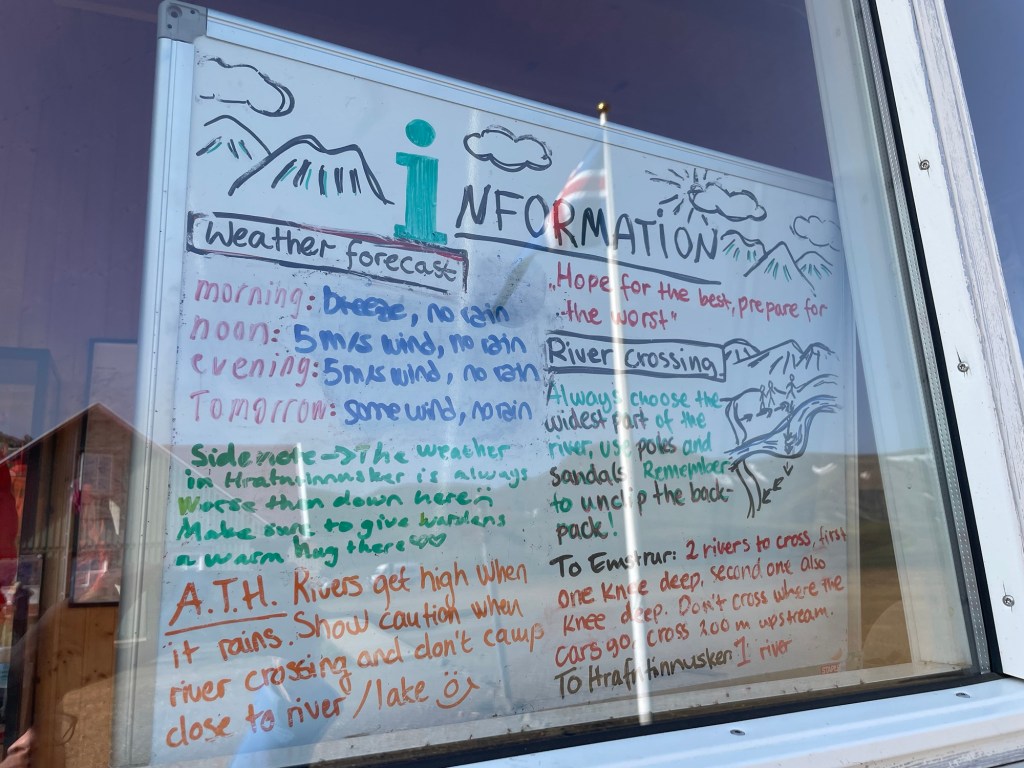 iNFORMATION
Weather forecast
morning: breeze, no rain
noon: 5 m/s wind, no rain
evening: 5 m/s wind, no rain
Tomorrow: some wind, no rain
Side note → The weather
in Hrafntinnusker is always
Worse than down here
Make sure to give wardens
a warm hug there ♡♡
A.T.H. Rivers get high when
it rains. Show caution when
river crossing and don't camp
close to river / lake
„Hope for the best, prepare for
the worst"
River Crossing
Always choose the
widest part of the
river, use poles and
sandals. Remember
to unclip the back-
pack!
To Emstrur: 2 rivers to cross, first
one knee deep, second one also
knee deep. Don't cross where the
cars go, cross 200 m upstream.
To Hrafntinnusker 1 river